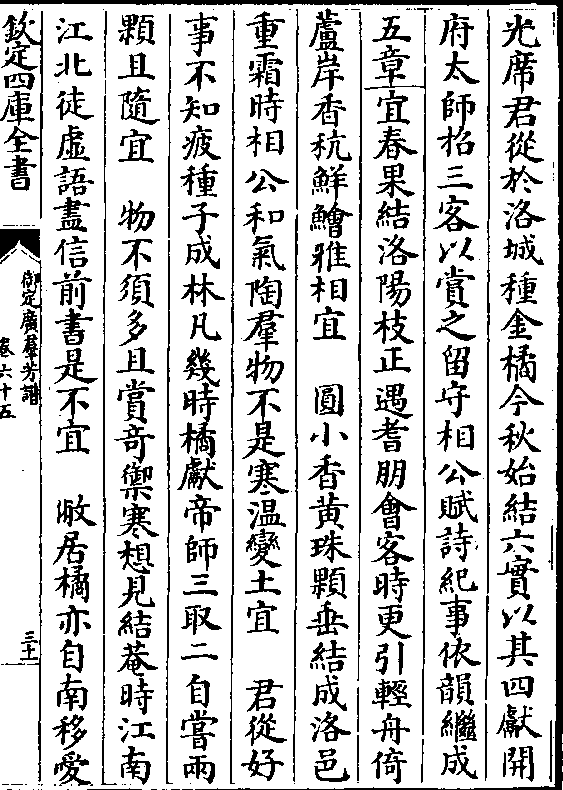 光席君從於洛城種金橘今秋始結六實以其四獻開
府太師招三客以賞之留守相公賦詩紀事依韻繼成
五章宜春果結洛陽枝正遇耆朋會客時更引輕舟倚
蘆岸香秔鮮鱠雅相宜　圓小香黃珠顆垂結成洛邑
重霜時相公和氣陶羣物不是寒溫變土宜　君從好
事不知疲種子成林凡幾時橘獻帝師三取二自嘗兩
顆且隨宜　物不須多且賞奇禦寒想見結菴時江南
江北徒虛語盡信前書是不宜　敝居橘亦自南移愛
欽定四庫全書
御定廣羣芳譜
卷六十五
三十一